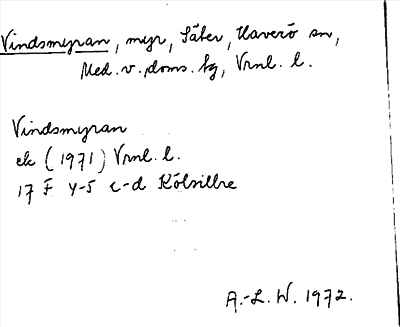 Vindsmyran, myr, Säter, Haverö sn,
Med. v. doms. hg, Vrnl. l.
Vindsmyran
ek (1971) Vrnl. l.
17 F 4-5 c-d Kölsillre
A.-L. W. 1972.